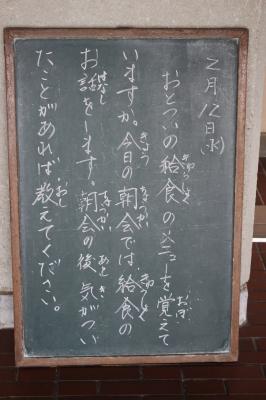 2月12日(水)
おとついの給食のメニューを覚えて
いますか。今日の朝会では、給食の
お話をします。朝会の後、気がつい
たことがあれば、教えてください。